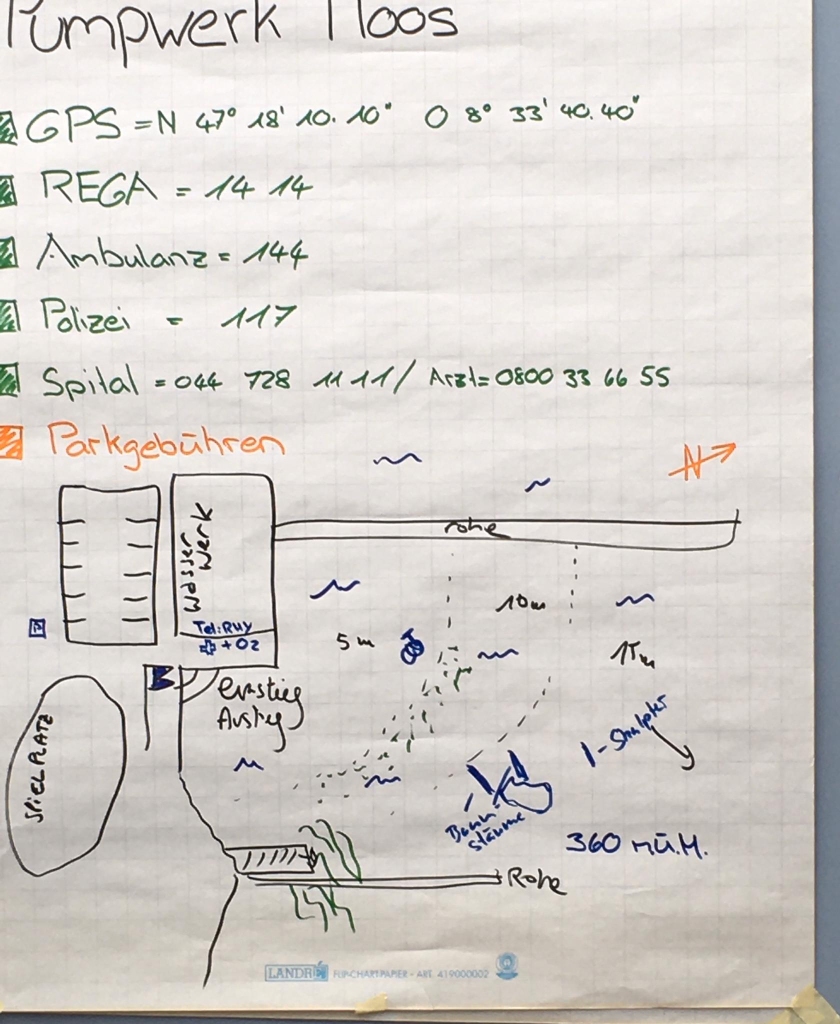 Pumpwerk Moos
GPS = N 47° 18' 10.10" O 8° 33' 40.40"
REGA = 14 14
Ambulanz = 144
Polizei = 117
Spital = 044 728 11 11 / Arzt = 0800 33 66 55
Parkgebühren
N
rohe
Wasser
Werk
10m
Tel: RUY
+ O2
5 m
15m
P
Einstieg
Austieg
SPIELPLATZ
1-Skulptur
Baum-
stämme
360 m.ü.M.
Rohe
LANDRÉ FLIP-CHARTPAPIER - ART. 419000002